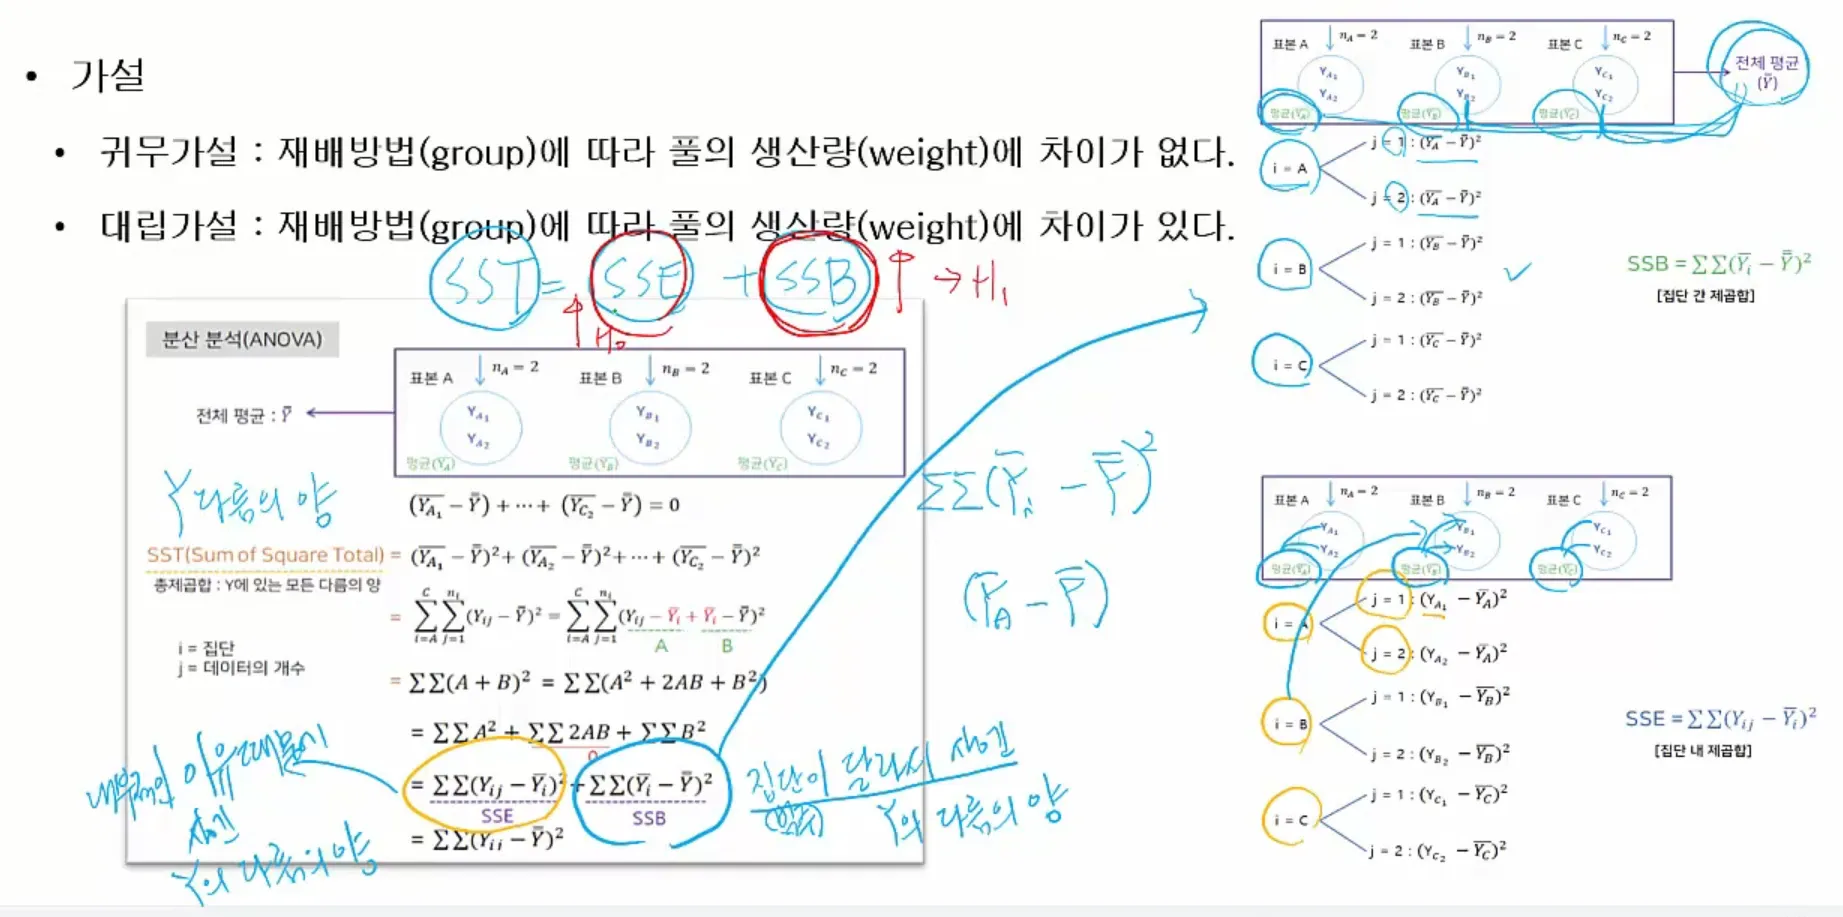 • 가설
• 귀무가설 : 재배방법(group)에 따라 풀의 생산량(weight)에 차이가 없다.
• 대립가설 : 재배방법(group)에 따라 풀의 생산량(weight)에 차이가 있다.
SST = SSE + SSB ↑ → H₁
↑ H₀
분산 분석(ANOVA)
표본 A ↓ n_A = 2 표본 B ↓ n_B = 2 표본 C ↓ n_C = 2
전체 평균 : Y̿
Y_A₁ Y_B₁ Y_C₁
Y_A₂ Y_B₂ Y_C₂
평균(Y̅_A) 평균(Y̅_B) 평균(Y̅_C)
Y 다름의 양
(Y̅_A₁ − Y̿) + ⋯ + (Y̅_C₂ − Y̿) = 0
SST(Sum of Square Total) = (Y̅_A₁ − Y̿)² + (Y̅_A₂ − Y̿)² + ⋯ + (Y̅_C₂ − Y̿)²
총제곱합 : Y에 있는 모든 다름의 양
= ∑_{i=A}^{C} ∑_{j=1}^{n_i} (Y_ij − Y̿)² = ∑_{i=A}^{C} ∑_{j=1}^{n_i} (Y_ij − Y̅_i + Y̅_i − Y̿)²
A B
i = 집단
j = 데이터의 개수
= ∑∑(A + B)² = ∑∑(A² + 2AB + B²)
= ∑∑A² + ∑∑2AB + ∑∑B²
0
= ∑∑(Y_ij − Y̅_i)² + ∑∑(Y̅_i − Y̿)²
SSE SSB
= ∑∑(Y_ij − Y̿)²
이유 때문에
생긴
Y의 다름의 양
집단이 달라서 생긴
Y의 다름의 양
∑∑(Y̅_i − Y̿)²
(Y̅_A − Y̿)
표본 A ↓ n_A = 2 표본 B ↓ n_B = 2 표본 C ↓ n_C = 2
Y_A₁ Y_B₁ Y_C₁
Y_A₂ Y_B₂ Y_C₂
평균(Y̅_A) 평균(Y̅_B) 평균(Y̅_C)
전체 평균
(Y̿)
j = 1 : (Y̅_A − Y̿)²
i = A
j = 2 : (Y̅_A − Y̿)²
j = 1 : (Y̅_B − Y̿)²
i = B
j = 2 : (Y̅_B − Y̿)²
j = 1 : (Y̅_C − Y̿)²
i = C
j = 2 : (Y̅_C − Y̿)²
SSB = ∑∑(Y̅_i − Y̿)²
[집단 간 제곱합]
표본 A ↓ n_A = 2 표본 B ↓ n_B = 2 표본 C ↓ n_C = 2
Y_A₁ Y_B₁ Y_C₁
Y_A₂ Y_B₂ Y_C₂
평균(Y̅_A) 평균(Y̅_B) 평균(Y̅_C)
j = 1 : (Y_A₁ − Y̅_A)²
i = A
j = 2 : (Y_A₂ − Y̅_A)²
j = 1 : (Y_B₁ − Y̅_B)²
i = B
j = 2 : (Y_B₂ − Y̅_B)²
j = 1 : (Y_C₁ − Y̅_C)²
i = C
j = 2 : (Y_C₂ − Y̅_C)²
SSE = ∑∑(Y_ij − Y̅_i)²
[집단 내 제곱합]